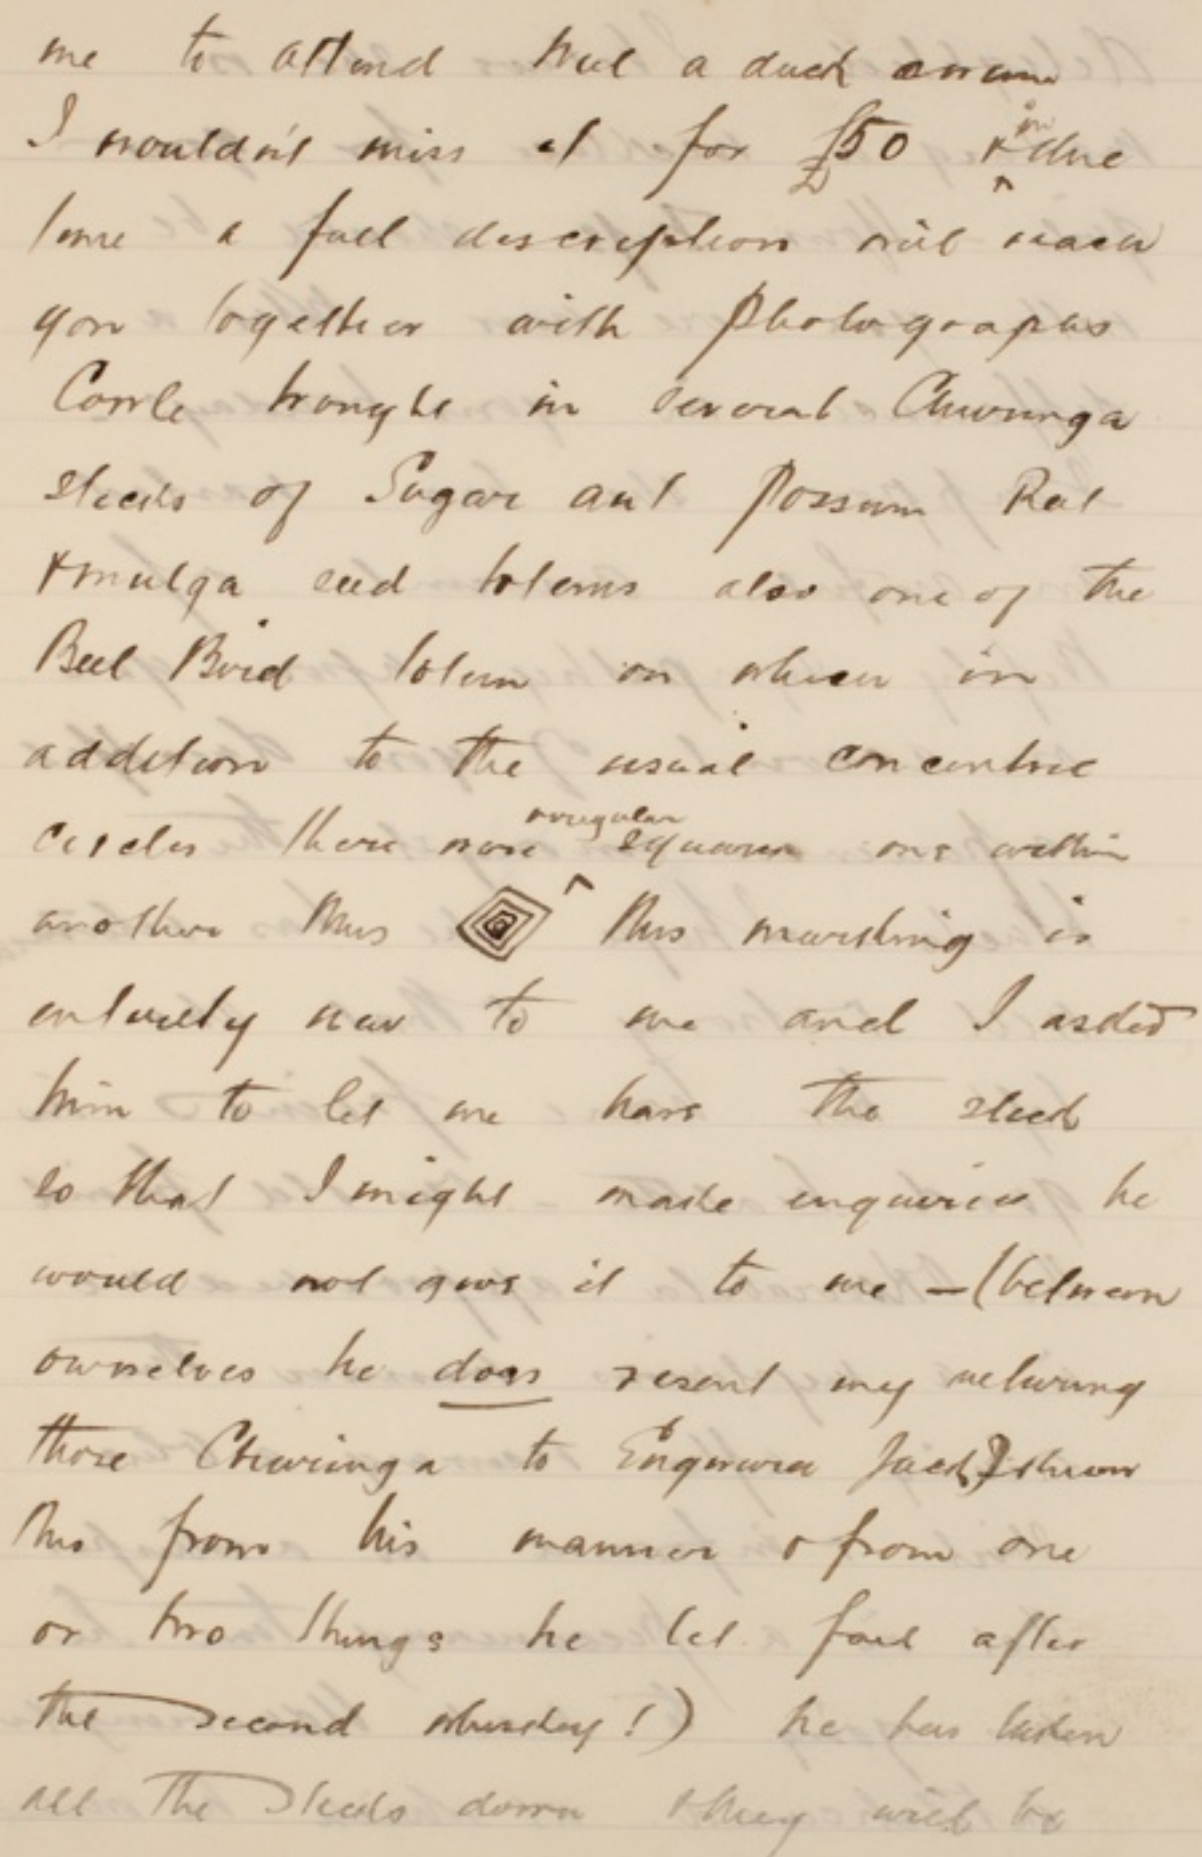 me to attend but a duck
I wouldn't miss it for £50 & in due
time a full description will reach
you together with photographs
Cowle brought in several Churinga
sticks of Sugar ant Possum Rat
& mulga seed totems also one of the
Bell Bird totem on which in
addition to the usual concentric
circles there were irregular squares one within
another thus this marking is
entirely new to me and I asked
him to let me have the stick
so that I might make inquiries he
would not give it to me — (between
ourselves he does resent my returning
those Churinga to Engwura Jack I know
this from his manner & from one
or two things he let fall after
the second whiskey!) he has taken
all the sticks down & they will be